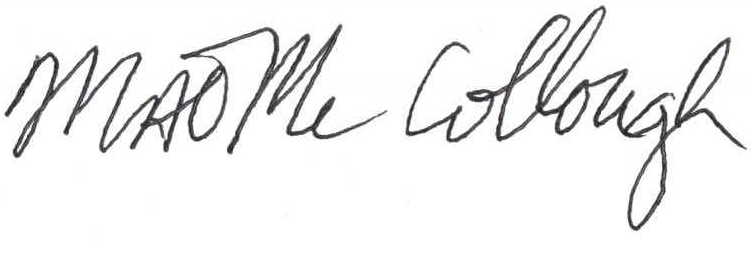 Matt McCollough